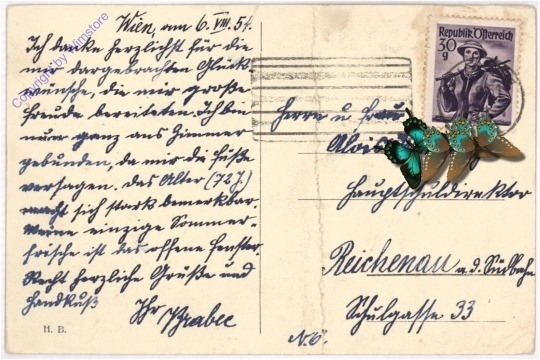 Wien, am 6. VIII. 54.
Ich danke herzlichst für die
mir dargebrachten Glück
wünsche, die mir große
Freude bereiteten. Ich bin
nun ganz ans Zimmer
gebunden, da mir die Füße
versagen. Das Alter (72 J.)
macht sich stark bemerkbar.
Meine einzige Sommer-
frische ist das offene Fenster.
Recht herzliche Grüße und
Handkuß
Ihr Brabec
H. B.
Republik Österreich
30
g
Herrn u. Frau
Alois
Hauptschuldirektor
Reichenau a. d. Südbahn
Schulgasse 33
N.Ö.
Copyright by
store